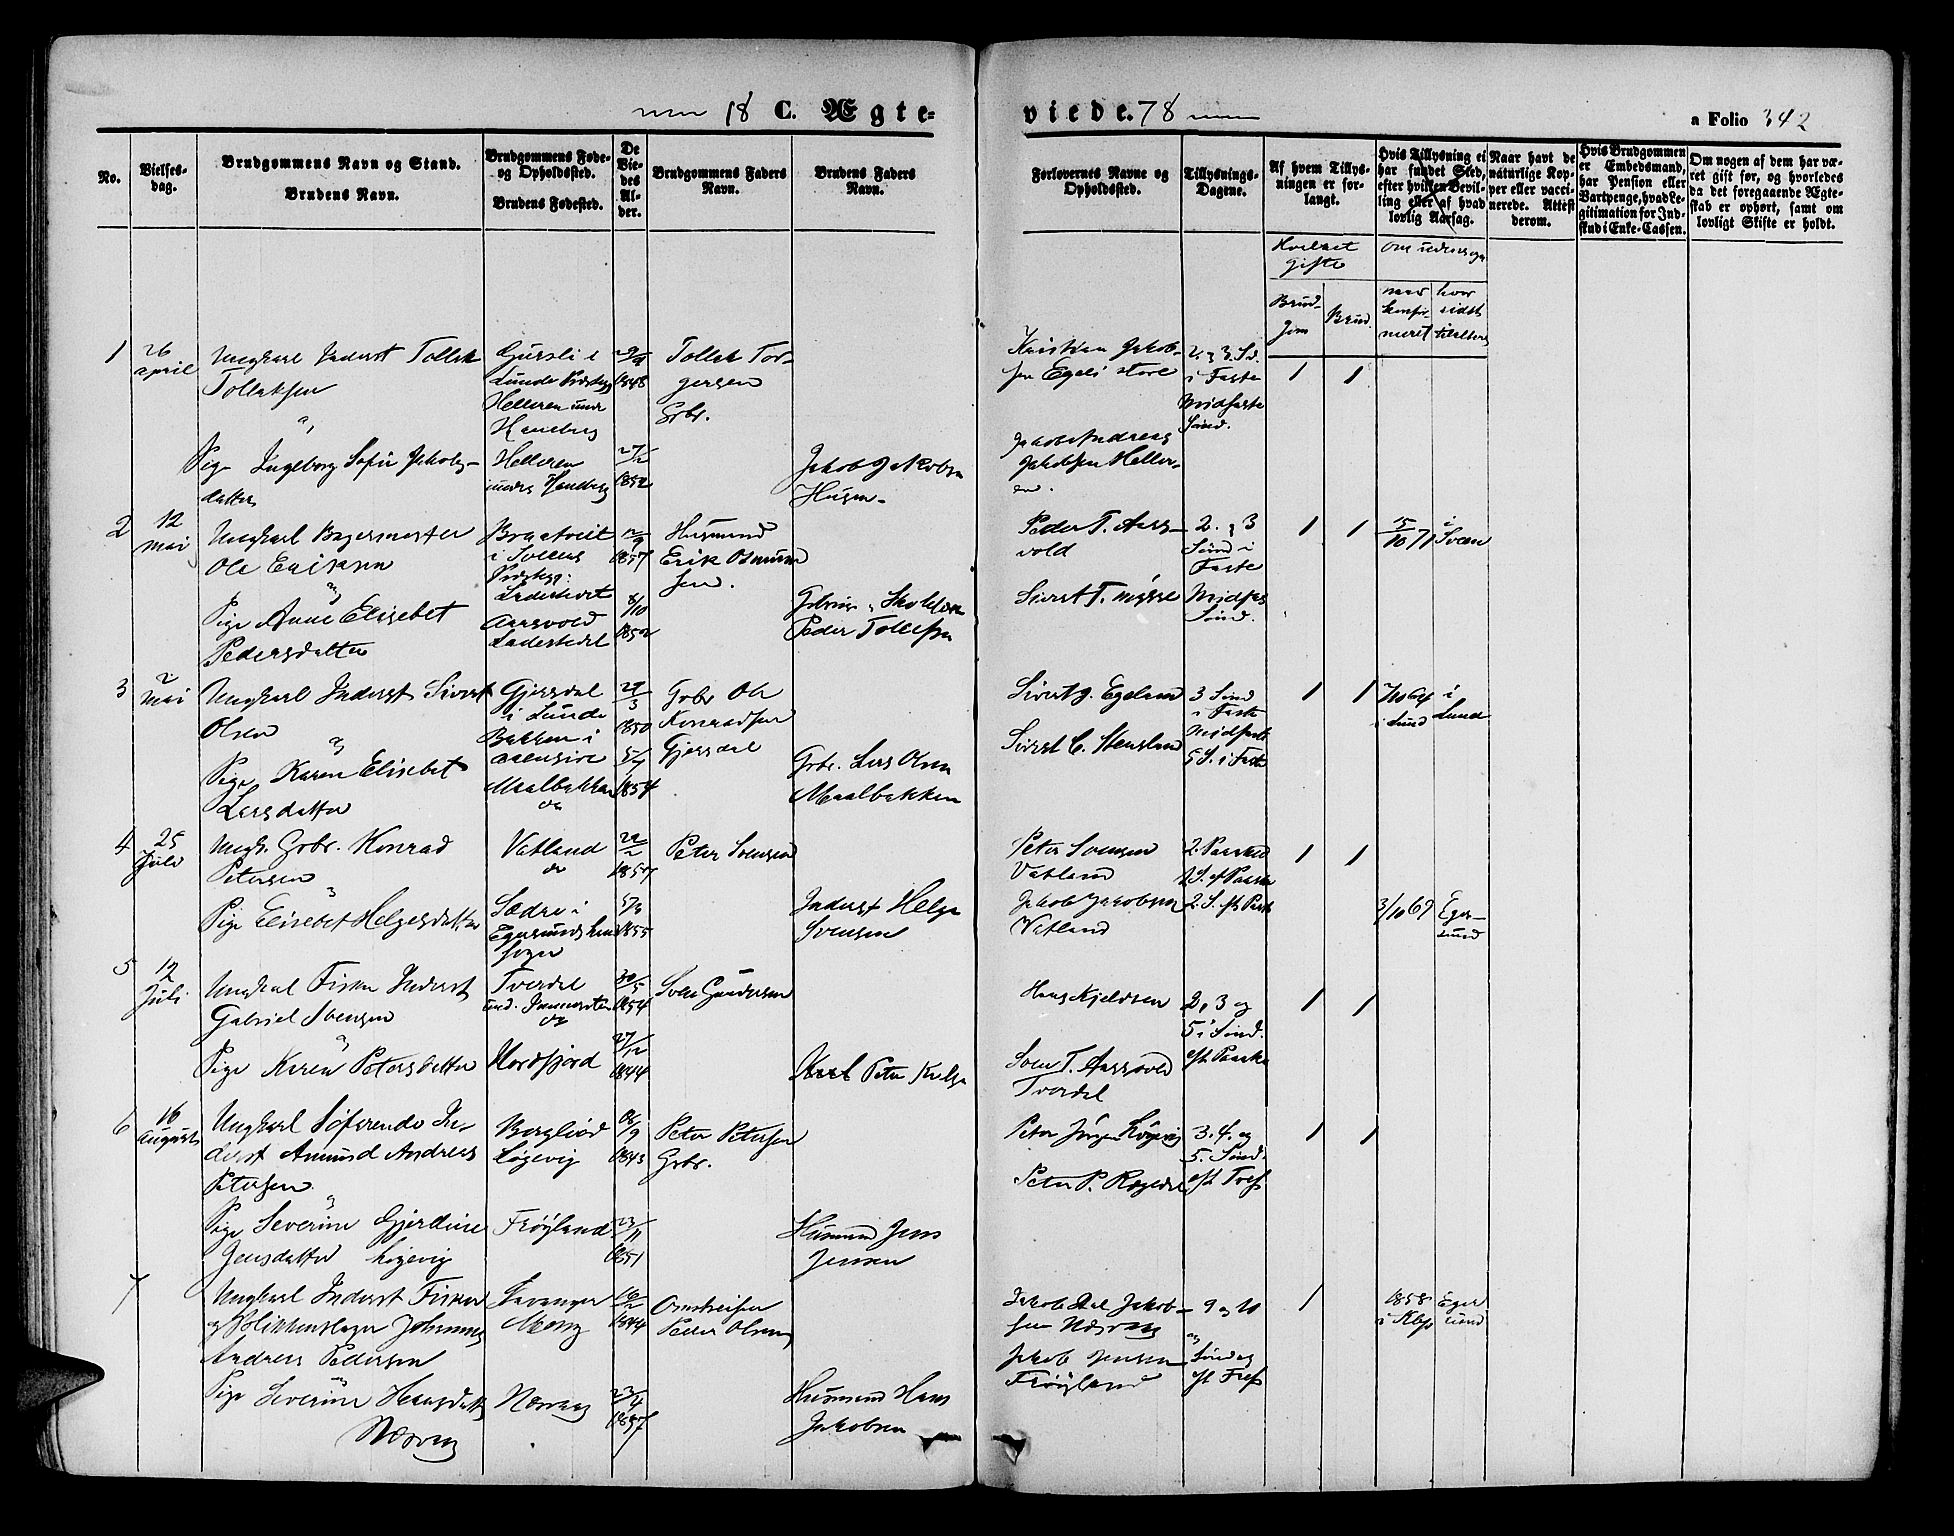 18 C. Ægte=
viede. 78
a Folio 342
No.
Vielses-
dag.
Brudgommens Navn og Stand.
Brudens Navn.
Brudgommens Føde-
og Opholdssted.
Brudens Fødested.
De
Vie-
des
Al-
der.
Brudgommens Faders
Navn.
Brudens Faders
Navn.
Forlovernes Navne og
Opholdssted.
Tillysnings-
Dagene.
Af hvem Tillys-
ningen er for-
langt.
Hvis Tillysning ei
har fundet Sted,
efter hvilken Bevil-
ling eller af hvad
lovlig Aarsag.
Naar havt de
naturlige Kop-
per eller vacci-
nerede. Attest
derom.
Hvis Brudgommen
er Embedsmand,
har Pension eller
Vartpenge, hvad Le-
gitimation for Ind-
skud i Enke-Cassen.
Om nogen af dem har væ-
ret gift før, og hvorledes
da det foregaaende Ægte-
skab er ophørt, samt om
lovligt Skifte er holdt.
gifte
Brud-
gom
Brud
naar
konfir-
meret
hvor
sidst
1
26
april
Ungkarl Inderst Tollak
Tollaksen
Pige Ingeborg Sofie Jakobs-
datter
Gursli i
Lunde Præstegj
Helleren under
Haneberg
Helleren
under Haneberg
1848
27/12
1852
Tollak Tor-
gersen
Grbr.
Jakob Jakobsen
Husm-
Kristian Jakob-
sen Egeli store
Jakob Andreas
Jakobsen Heller-
en.
2. og 3. Sd.
i Faste
Midfaste
Sønd.
1 1
2
12
Mai
Ungkarl Bagermester
Ole Eriksen
og
Pige Anne Elisebet
Pedersdatter
i Soknes
Præstegj:
Ladestedet
Aarsvold
Ladestedet
12/9
1857
8/10
1852
Husmand
Erik Osmun
sen.
Peder Tollefsen
Peder T. Aars-
vold
Sivert T. Mysse
2. og 3
Sønd i
Faste
Midfas
Sønd.
1 1
15/10 71
i
3
2
Mai
Ungkarl Inderst Sivert
Olsen
og
Pige Karen Elisebet
Larsdatter
Gjersdal
i Lunde
Bakken i
Maalbakken
29/3
1850
5/7
1854
Grbr Ole
Konradsen
Gjersdal
Grbr. Lars Olsen
Maalbakken
Sivert J. Egeland
Sivert C. Stensland
3 Sønd
i Faste
Midfaste
5 S. i Faste
1 1
7/10 64
i Lund
i
Lund
4
25
Juli
Ungk. Grbr. Konrad
Petersen
Pige Elisebet Helgesdatter
Vatland
Sædre i
Egersunds land
sogn
22/2
1857
5/3
1855
Peter Svensen
Inderst Helge
Svensen
Peter Svensen
Vatland
Jakob Jakobsen
Vatland
2. Paaske
1 S. ef Paaske
2. S. eft Pask
1 1
3/10 69
Eger-
sund
5
12
Juli
Ungkarl Fisker Inderst
Gabriel Svensen
og
Pige Karen Petersdatter
Tverdal
Nordfjord
20/5
1854
27/12
1844
Sven Gundersen
Peter
Hans Kjeldsen
Sven T. Aarsvold
Tverdal
2, 3 og
5 i Sønd.
eft Paaske
1 1
6
16
Augusti
Ungkarl Søfarende In-
derst Amund Andreas
Petersen
og
Pige Severine Gjerdine
Jensdatter Løgevig
Løgevig
Frøyland
28/9
1843
23/11
1851
Peter Petersen
Grbr.
Husmand Jens
Jensen
Peter Jørgen Løgevig
Peter P. Rægedal
3. 4. og
5. Sønd.
eft Tref
1 1
7
Ungkarl Inderst Fisker
og Blikkenslager Johannes
Andreas Pedersen
Pige Severine Hansdatt
Nærvæg
Stavanger
Nærvæg
16/2
1844
23/4
1857
Peder Olsen
Husmand Hans
Jakobsen
Jakob Aal Jakob-
sen Nærvæg
Jakob Jensen
Frøyland
9 og 10
Søndag
eft Tref
1
1858
Eger
sund